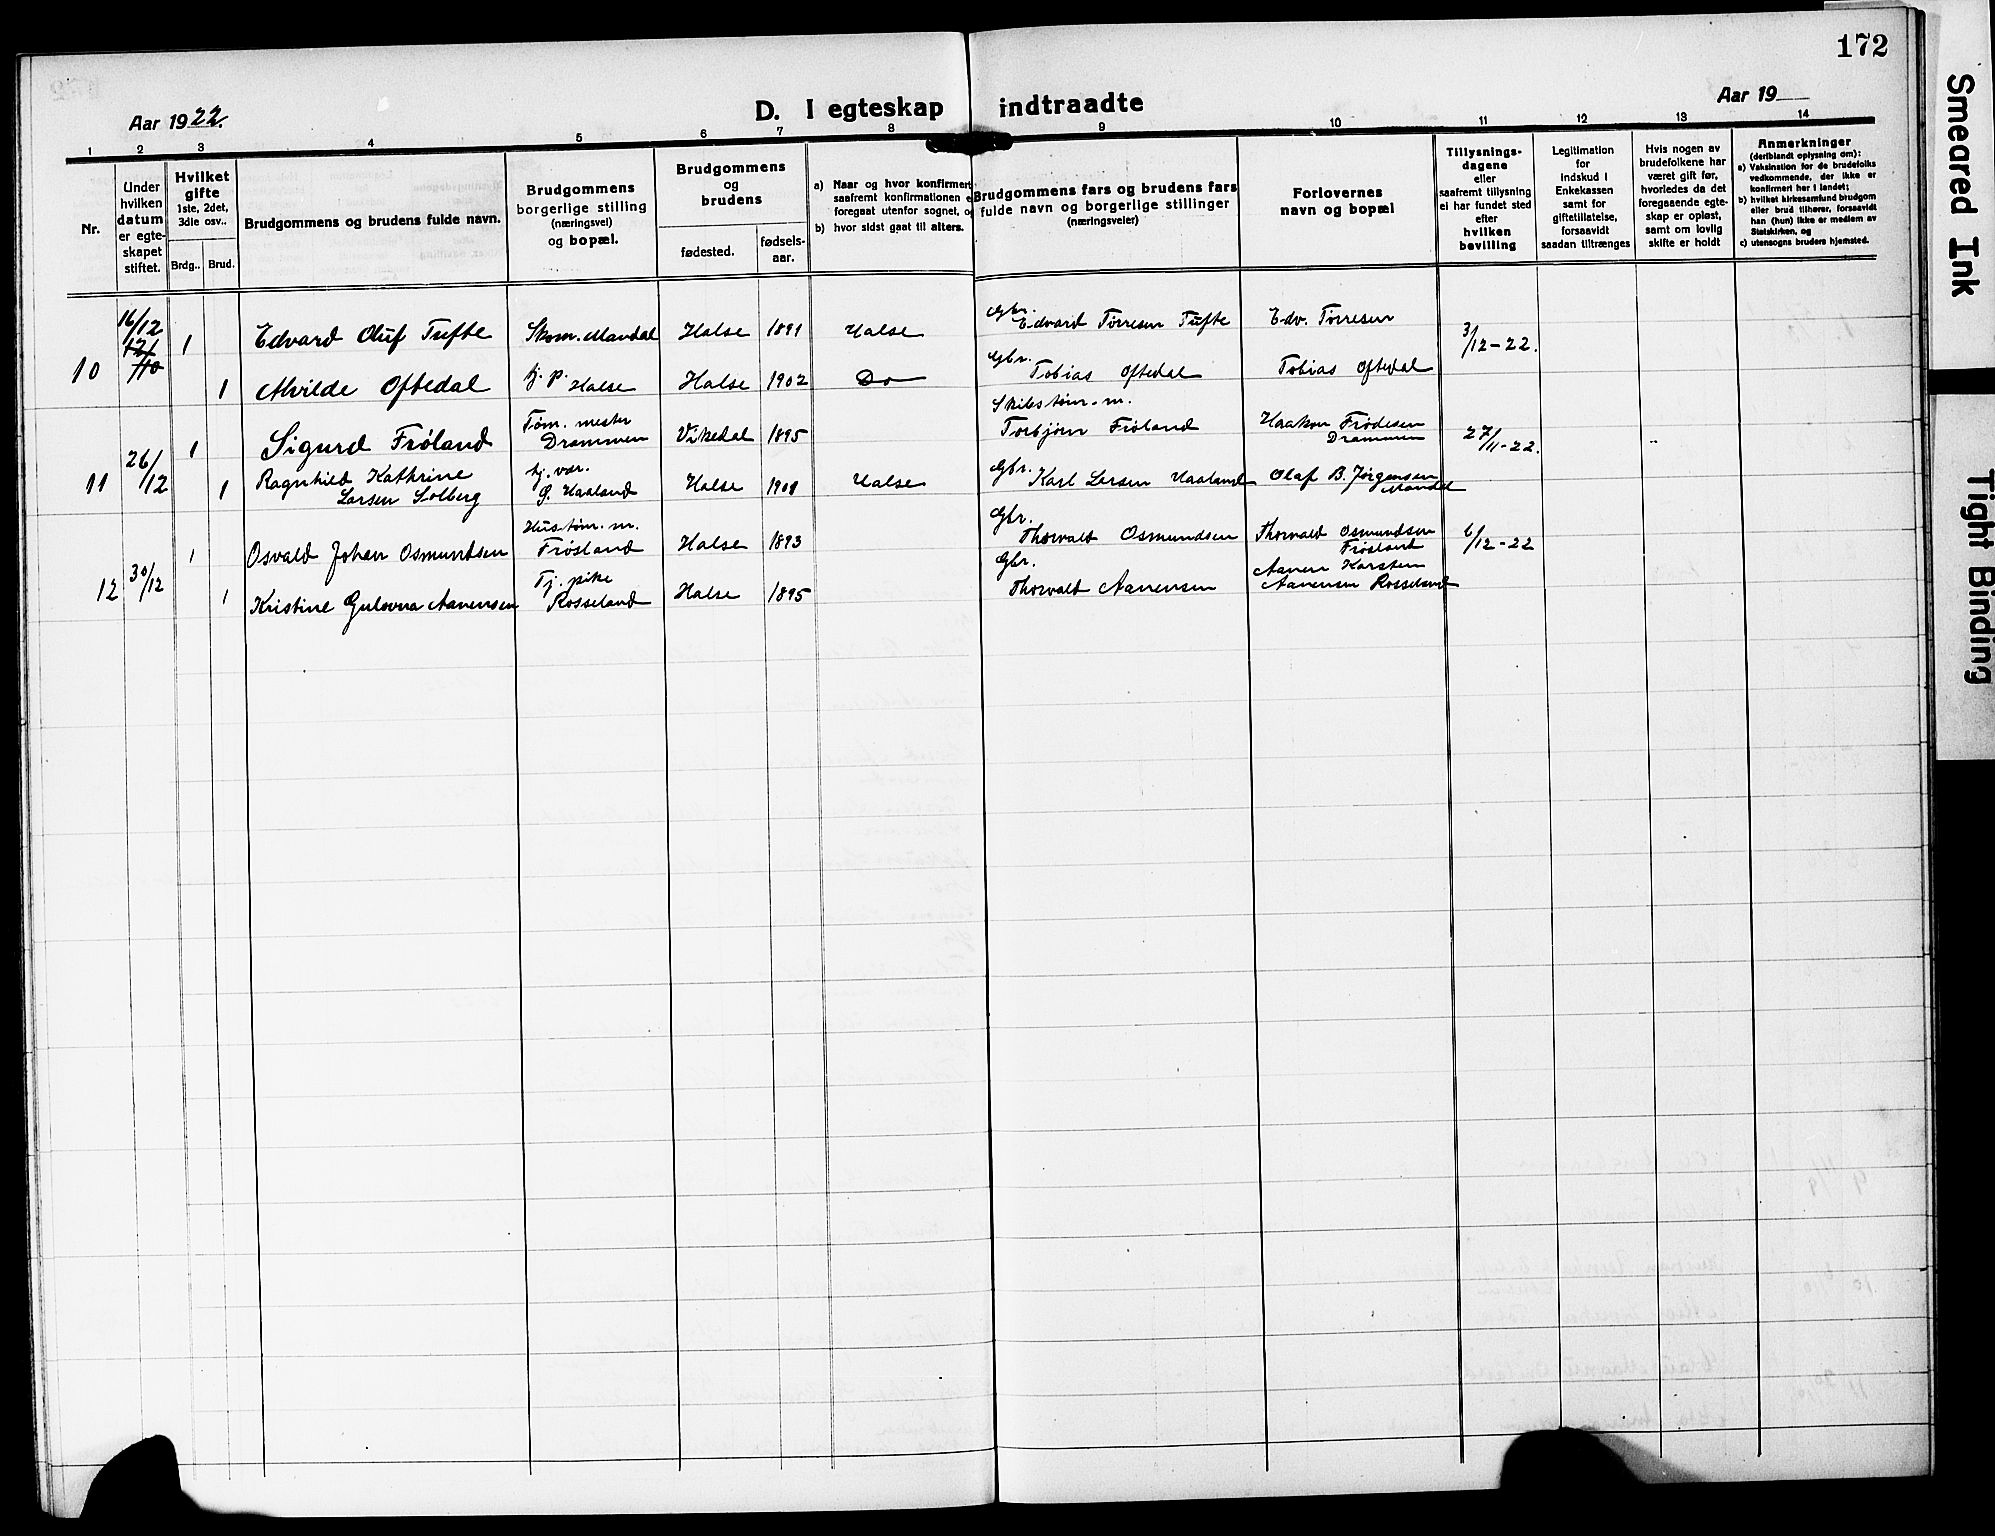 172
Aar 1922.
D. I egteskap indtraadte
Aar 19
1 2 3 4 5 6 7 8 9 10 11 12 13 14
Nr.
Under hvilken datum er egteskapet stiftet.
Hvilket gifte 1ste, 2det, 3die osv..
Brdg.. Brud.
Brudgommens og brudens fulde navn.
Brudgommens borgerlige stilling (næringsvei) og bopæl.
Brudgommens og brudens
fødested. fødselsaar.
a) Naar og hvor konfirmert saafremt konfirmationen e foregaat utenfor sognet, o
b) hvor sidst gaat til alters.
Brudgommens fars og brudens fars fulde navn og borgerlige stillinger (næringsveier)
Forlovernes navn og bopæl
Tillysningsdagene eller saafremt tillysning ei har fundet sted efter hvilken bevilling
Legitimation for indskud i Enkekassen samt for giftetillatelse, forsaavidt saadan tiltrænges
Hvis nogen av brudefolkene har været gift før, hvorledes da det foregaaende egteskap er opløst, samt om lovlig skifte er holdt
Anmerkninger (deriblandt oplysning om):
a) Vaksination for de brudefolks vedkommende, der ikke er konfirmert her i landet;
b) hvilket kirkesamfund brudgom eller brud tilhører, forsaavidt han (hun) ikke er medlem av Statskirken, og
c) utensogns bruders hjemsted.
10 16/12 1 Edvard Oluf Tufte Skom. Mandal Halse 1891 Halse Gbr. Edvard Tørresen Tufte Edv. Tørresen 3/12-22.
1 Alvilde Oftedal tj. p. Halse Halse 1902 Do Gbr. Tobias Oftedal Tobias Oftedal
11 26/12 1 Sigurd Frøland Tøm. mester Drammen Vikedal 1895 Skibstøm. m. Torbjørn Frøland Haakon Frødesen Drammen 27/11-22.
1 Ragnhild Kathrine Larsen Solberg tj. vær. G. Haaland Halse Halse Gbr. Karl Larsen Haaland Olaf B. Jørgensen Mandal
12 30/12 1 Osvald Johan Osmundsen Hustøm. m. Frøsland Halse 1893 Gbr. Thorvald Osmundsen Thorvald Osmundsen Frøsland 6/12-22
1 Kristine Gulovna Aanensen Tj. pike Rosseland Halse 1895 Gbr. Thorvald Aanensen Aanen Karsten Aanensen Rosseland
Smeared Ink
Tight Binding